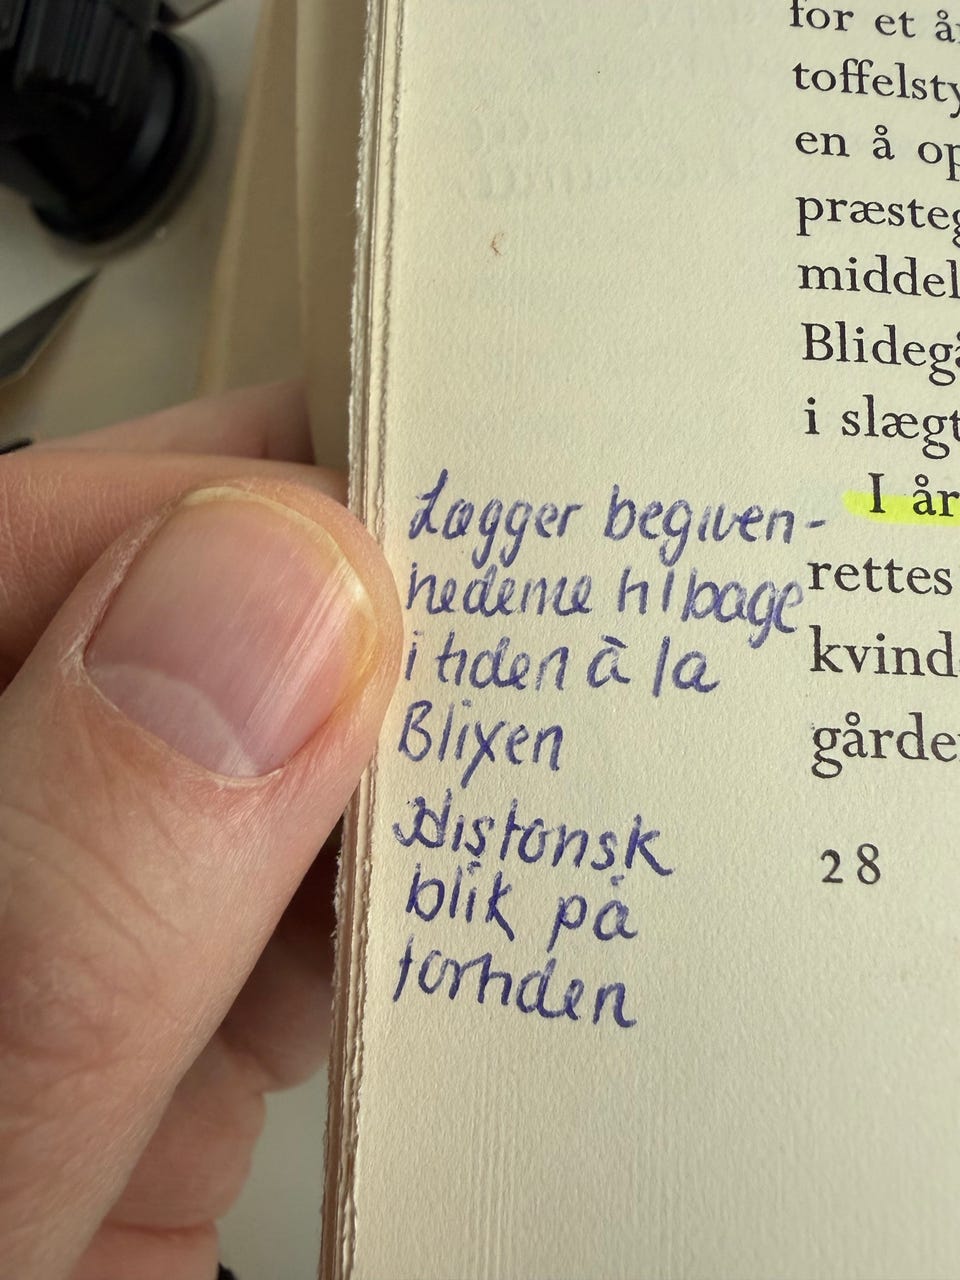 for et år
toffelsty
en å op
præsteg
middel
Blidegå
i slægt
I år
rettes
kvind
gårde
28
Lægger begiven-
hederne tilbage
i tiden à la
Blixen
Historisk
blik på
fortiden